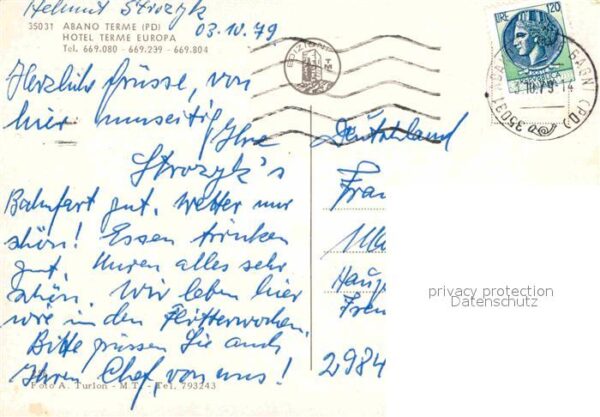 Helmut Strozyk
03.10.79
35031 ABANO TERME (PD)
HOTEL TERME EUROPA
Tel. 669.080 - 669.239 - 669.804
Herzliche Grüsse, von
hier
Ihre
Strozyk's
Bahnfart gut, Wetter nur
schön! Essen trinken
gut, alles sehr
schön. Wir leben hier
wie in den Flitterwochen.
Bitte grüssen Sie auch
Ihren Chef, von uns!
Foto A. Turlon - M.T. - Tel. 793243
EDIZIONI
TM
LIRE 120
35031 ABANO
BAGNI (PD)
3.10.79.14
Deutschland
Frau
Haup
2984
privacy protection
Datenschutz